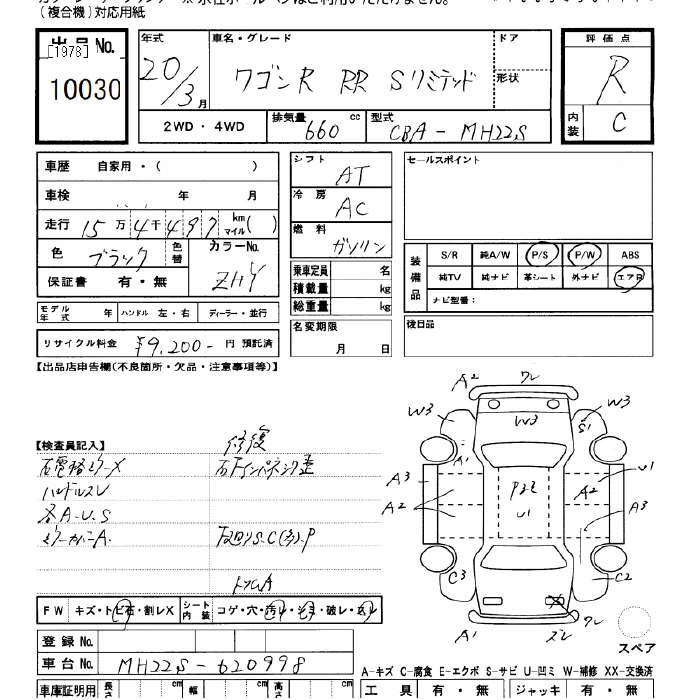 (複合機)対応用紙
出品 No.
[1978]
10030
年式
20/3月
車名・グレード
ワゴンR RR Sリミテッド
ドア
形状
評価点
R
内装
C
2WD・4WD
排気量
660
cc
型式
CBA-MH22S
車歴 自家用・( )
車検 年 月
走行 15万4千497 km マイル ( )
色 ブラック
色替
カラーNo.
ZHY
保証書 有・無
シフト
AT
冷房
AC
燃料
ガソリン
乗車定員 名
積載量 kg
総重量 kg
セールスポイント
装備品
S/R 純A/W P/S P/W ABS
純TV 純ナビ 革シート 外ナビ エアB
ナビ型番:
モデル年式 年 ハンドル 左・右 ディーラー・並行
リサイクル料金 ¥9,200- 円 預託済
名変期限
月 日
後日品
【出品店申告欄(不良箇所・欠品・注意事項等)】
【検査員記入】
修復
ハンドルスレ
各A・U・S
トランクA
A2 ワレ
W3 W3 S1
A1
A3 A2 U1
A2 U1 A3
C3 C2
A1 ワレ
スペア
FW キズ・トビ石・割レX
シート内装 コゲ・穴・汚レ・シミ・破レ・スレ
登録 No.
車台 No. MH22S-620998
A-キズ C-腐食 E-エクボ S-サビ U-凹ミ W-補修 XX-交換済
車庫証明用 長さ cm 幅 cm 高 cm
工具 有・無 ジャッキ 有・無